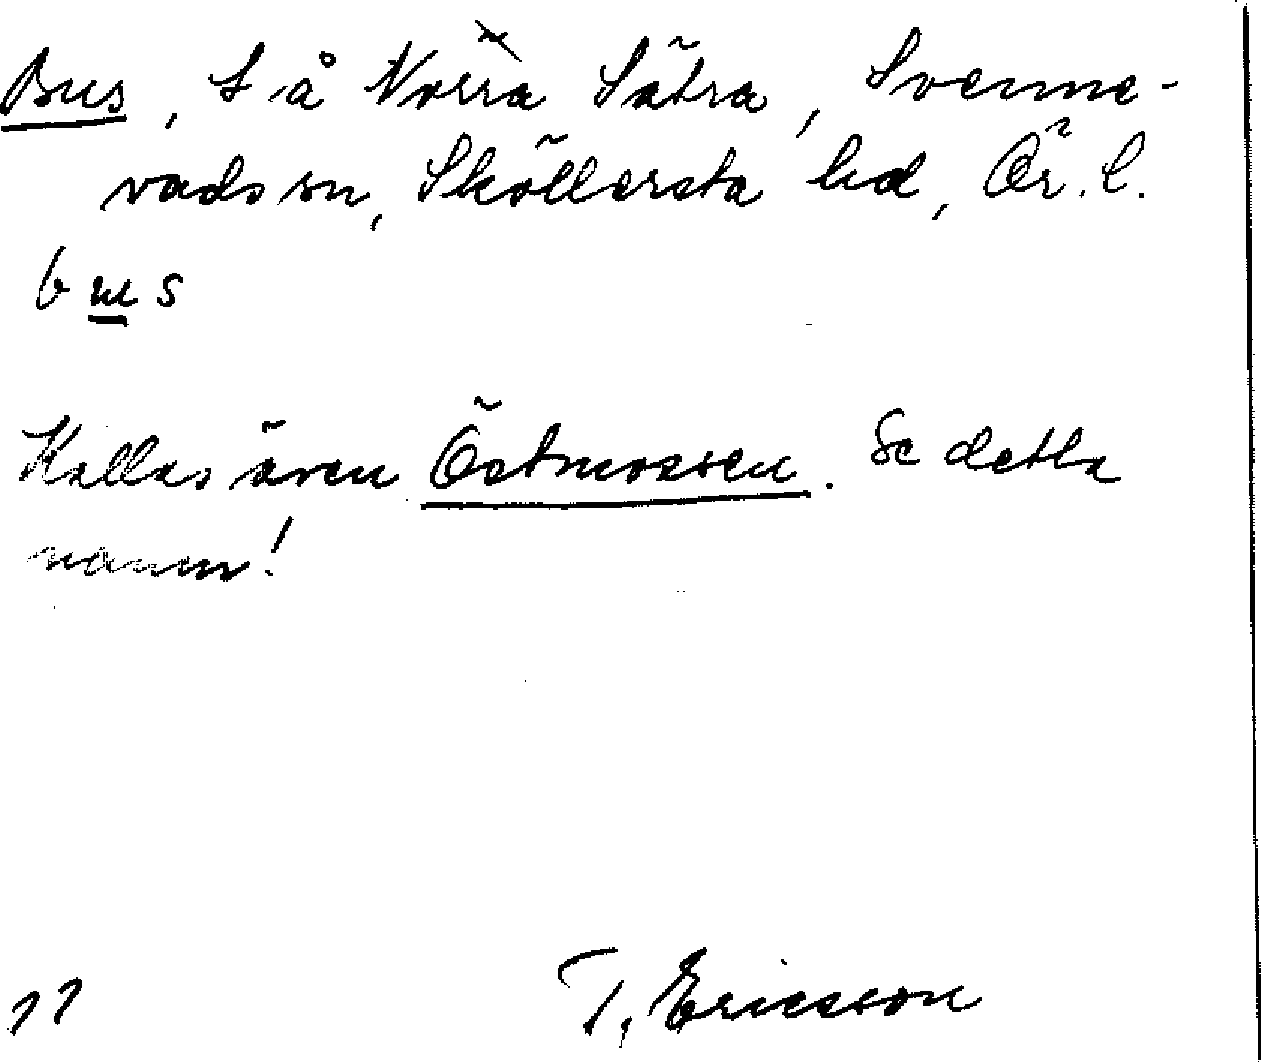 Bus, t. å Norra Sätra, Svenne-
vads sn, Sköllersta hd, Ör. l.
bus
Kallas även Östmossen. Se detta
namn!
T. Ericsson